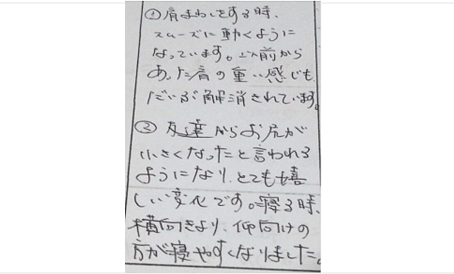 ①肩まわしをする時、
スムーズに動くように
なっています。以前から
あった肩の重い感じも
だいぶ解消されています。
②友達からお尻が
小さくなったと言われる
ようになり、とても嬉
しい変化です。寝る時、
横向きより、仰向けの
方が寝やすくなりました。